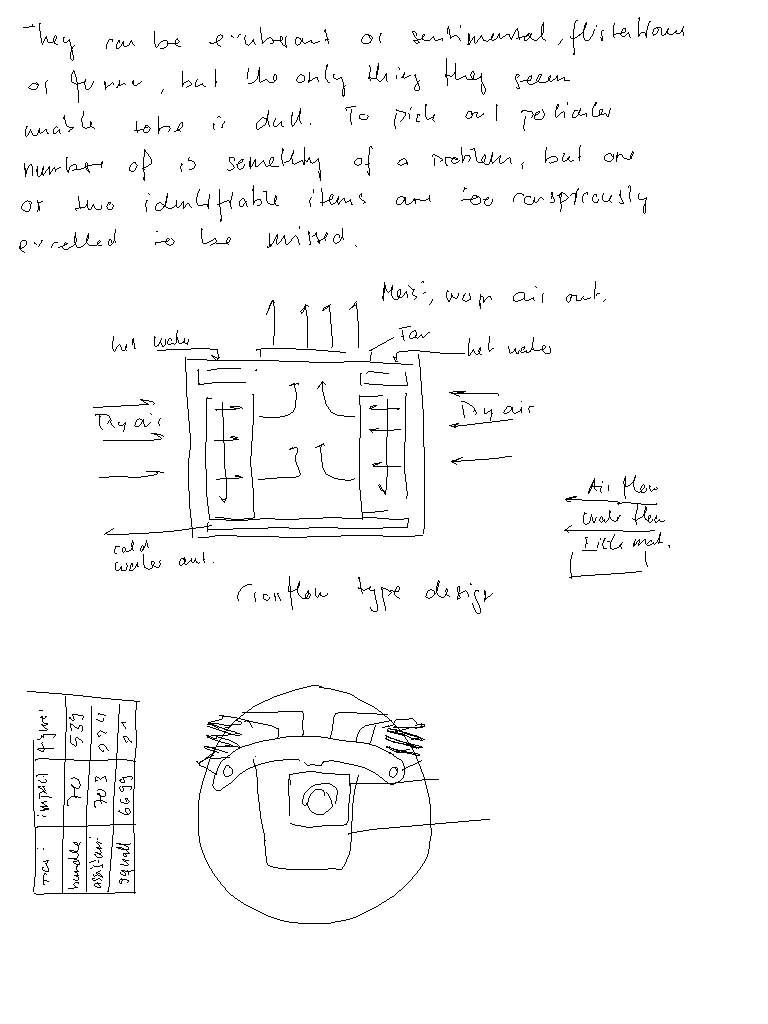 They can be exuberant or sentimental, flirtatious
or funny, but the only thing they seem
unable to be is dull. To pick out particular
number of is something of a problem, but one
or two identifiable items are too conspicuously
excelled to be missed.
Moist, warm air out.
Fan
hot water
hot water
Dry air
Dry air
Air flow
Water flow
cold
water out.
Crossflow type design
impact figure
bundle 70 539
assistant 703
squall 6699